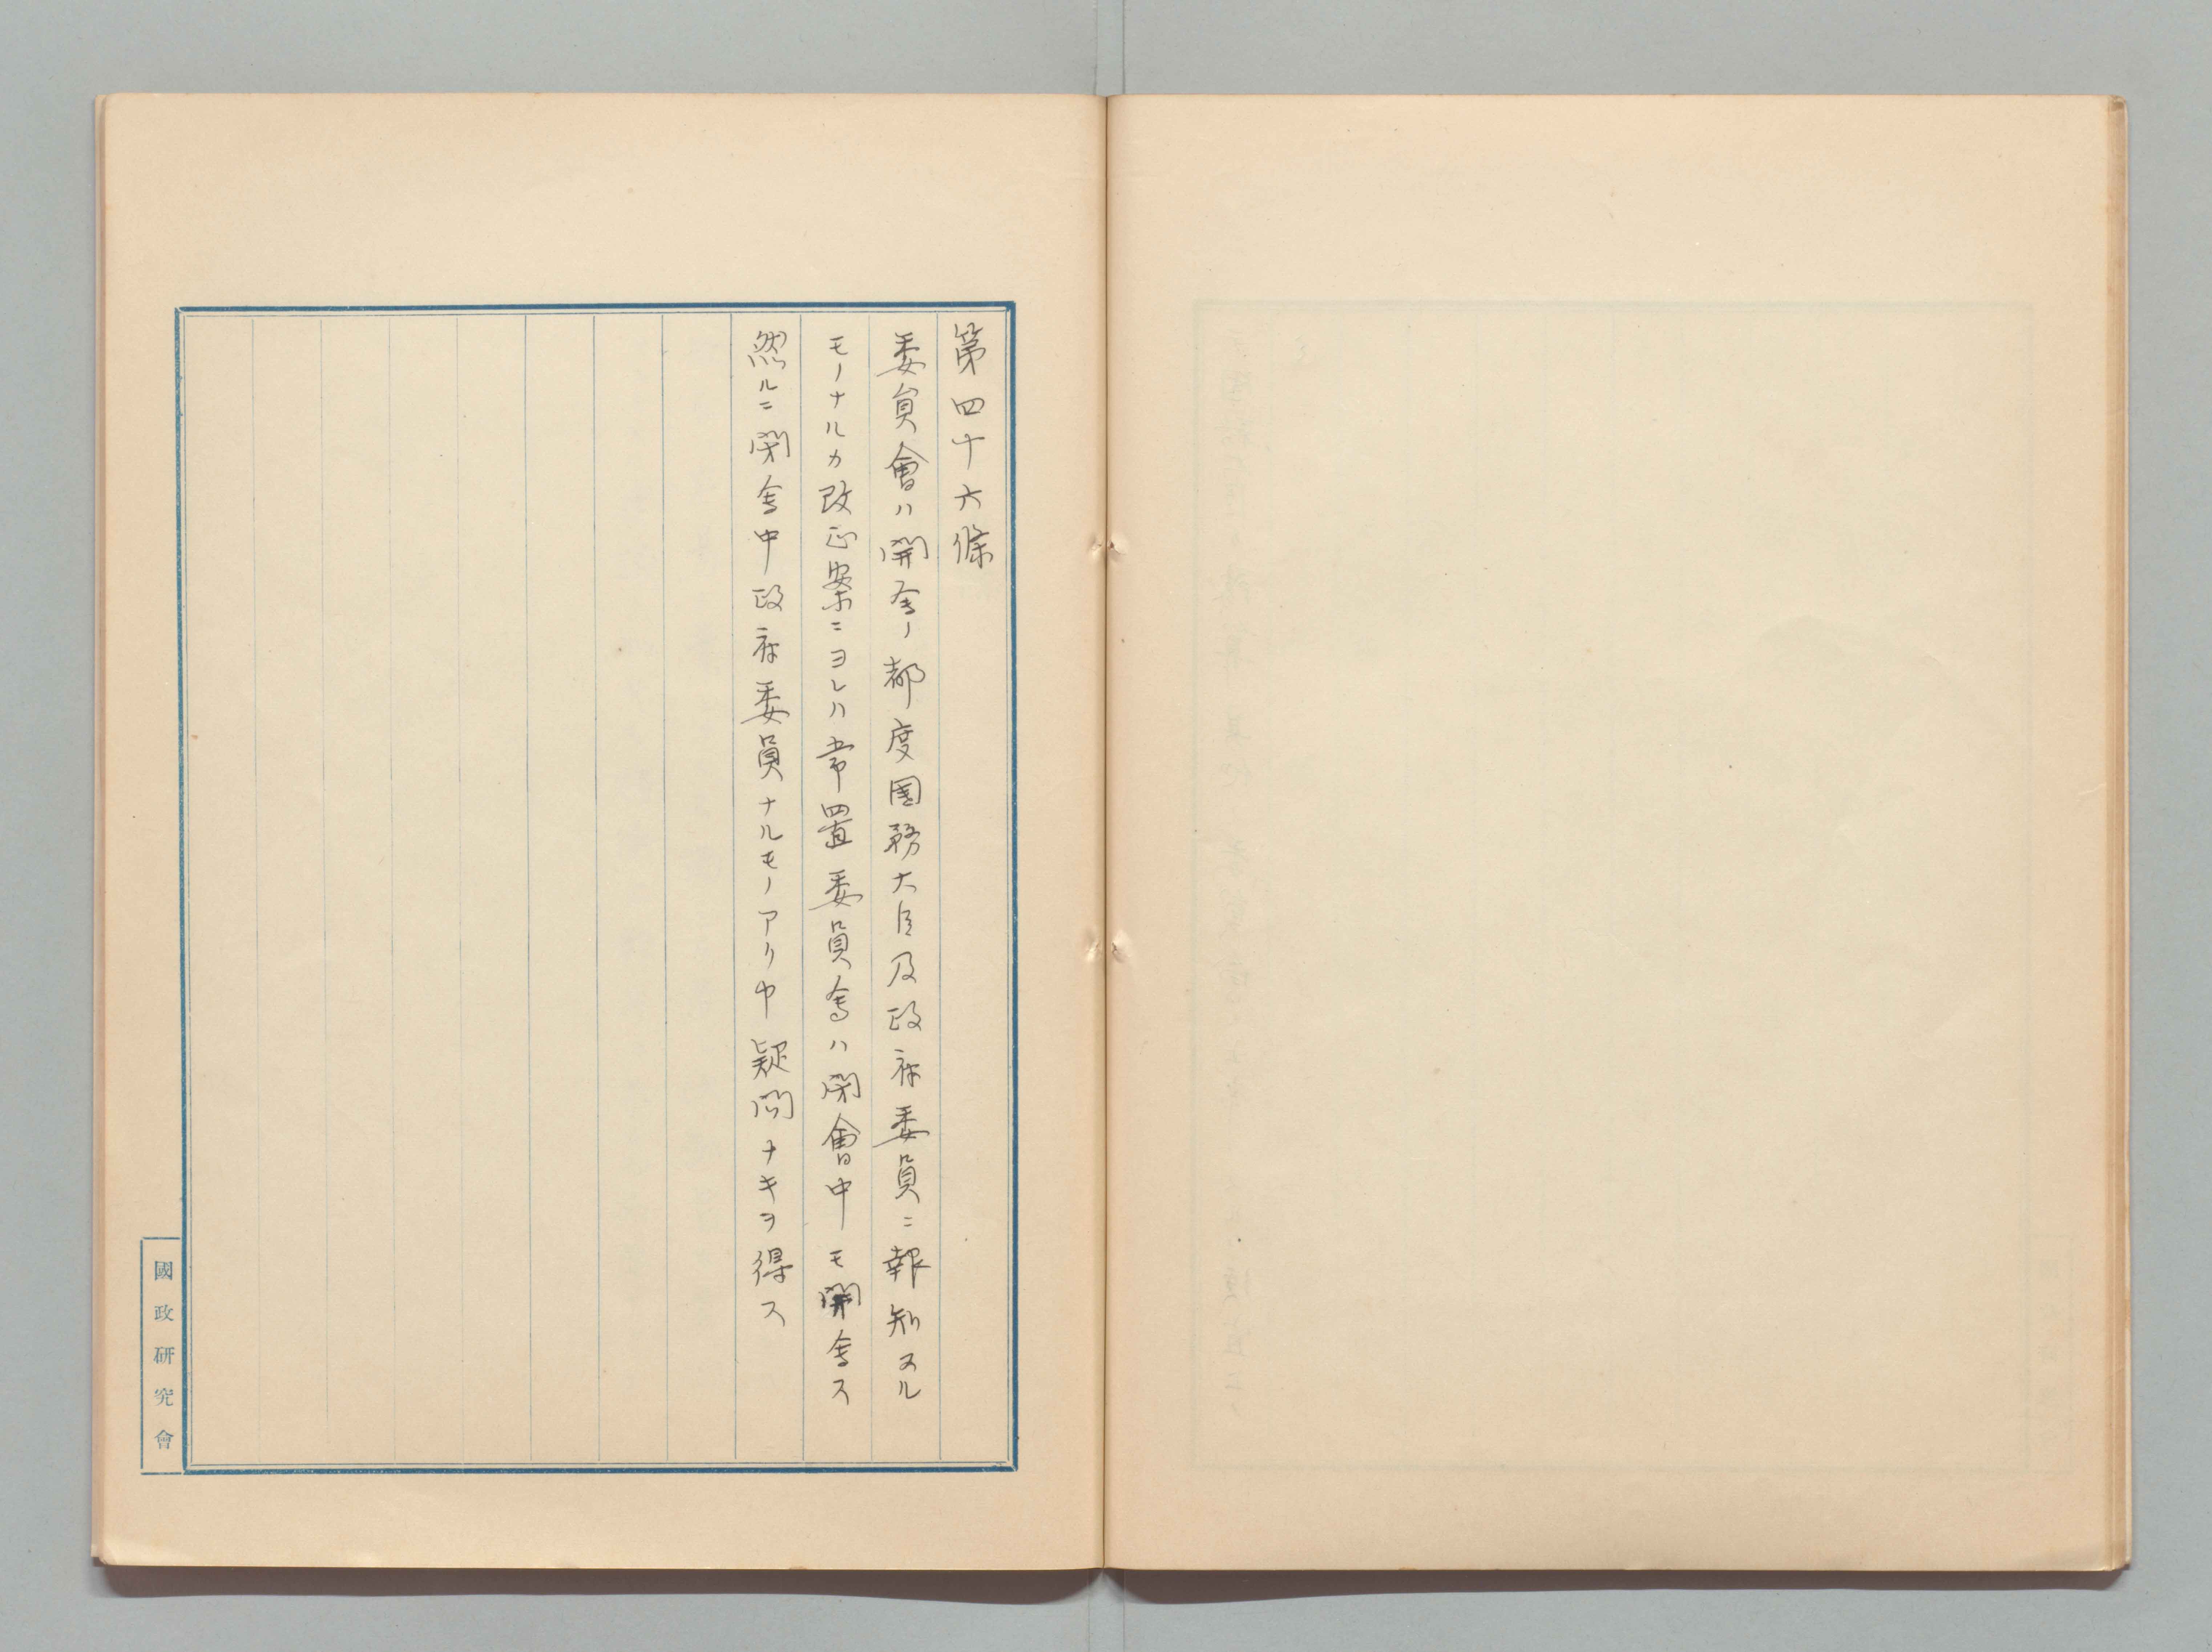 第四十六條
委員會ハ開会ノ都度国務大臣及政府委員ニ報知スル
モノナルカ改正案ニヨレハ常置委員会ハ閉會中モ開会ス
然ルニ閉会中政府委員ナルモノアリヤ疑問ナキヲ得ス
國政研究會